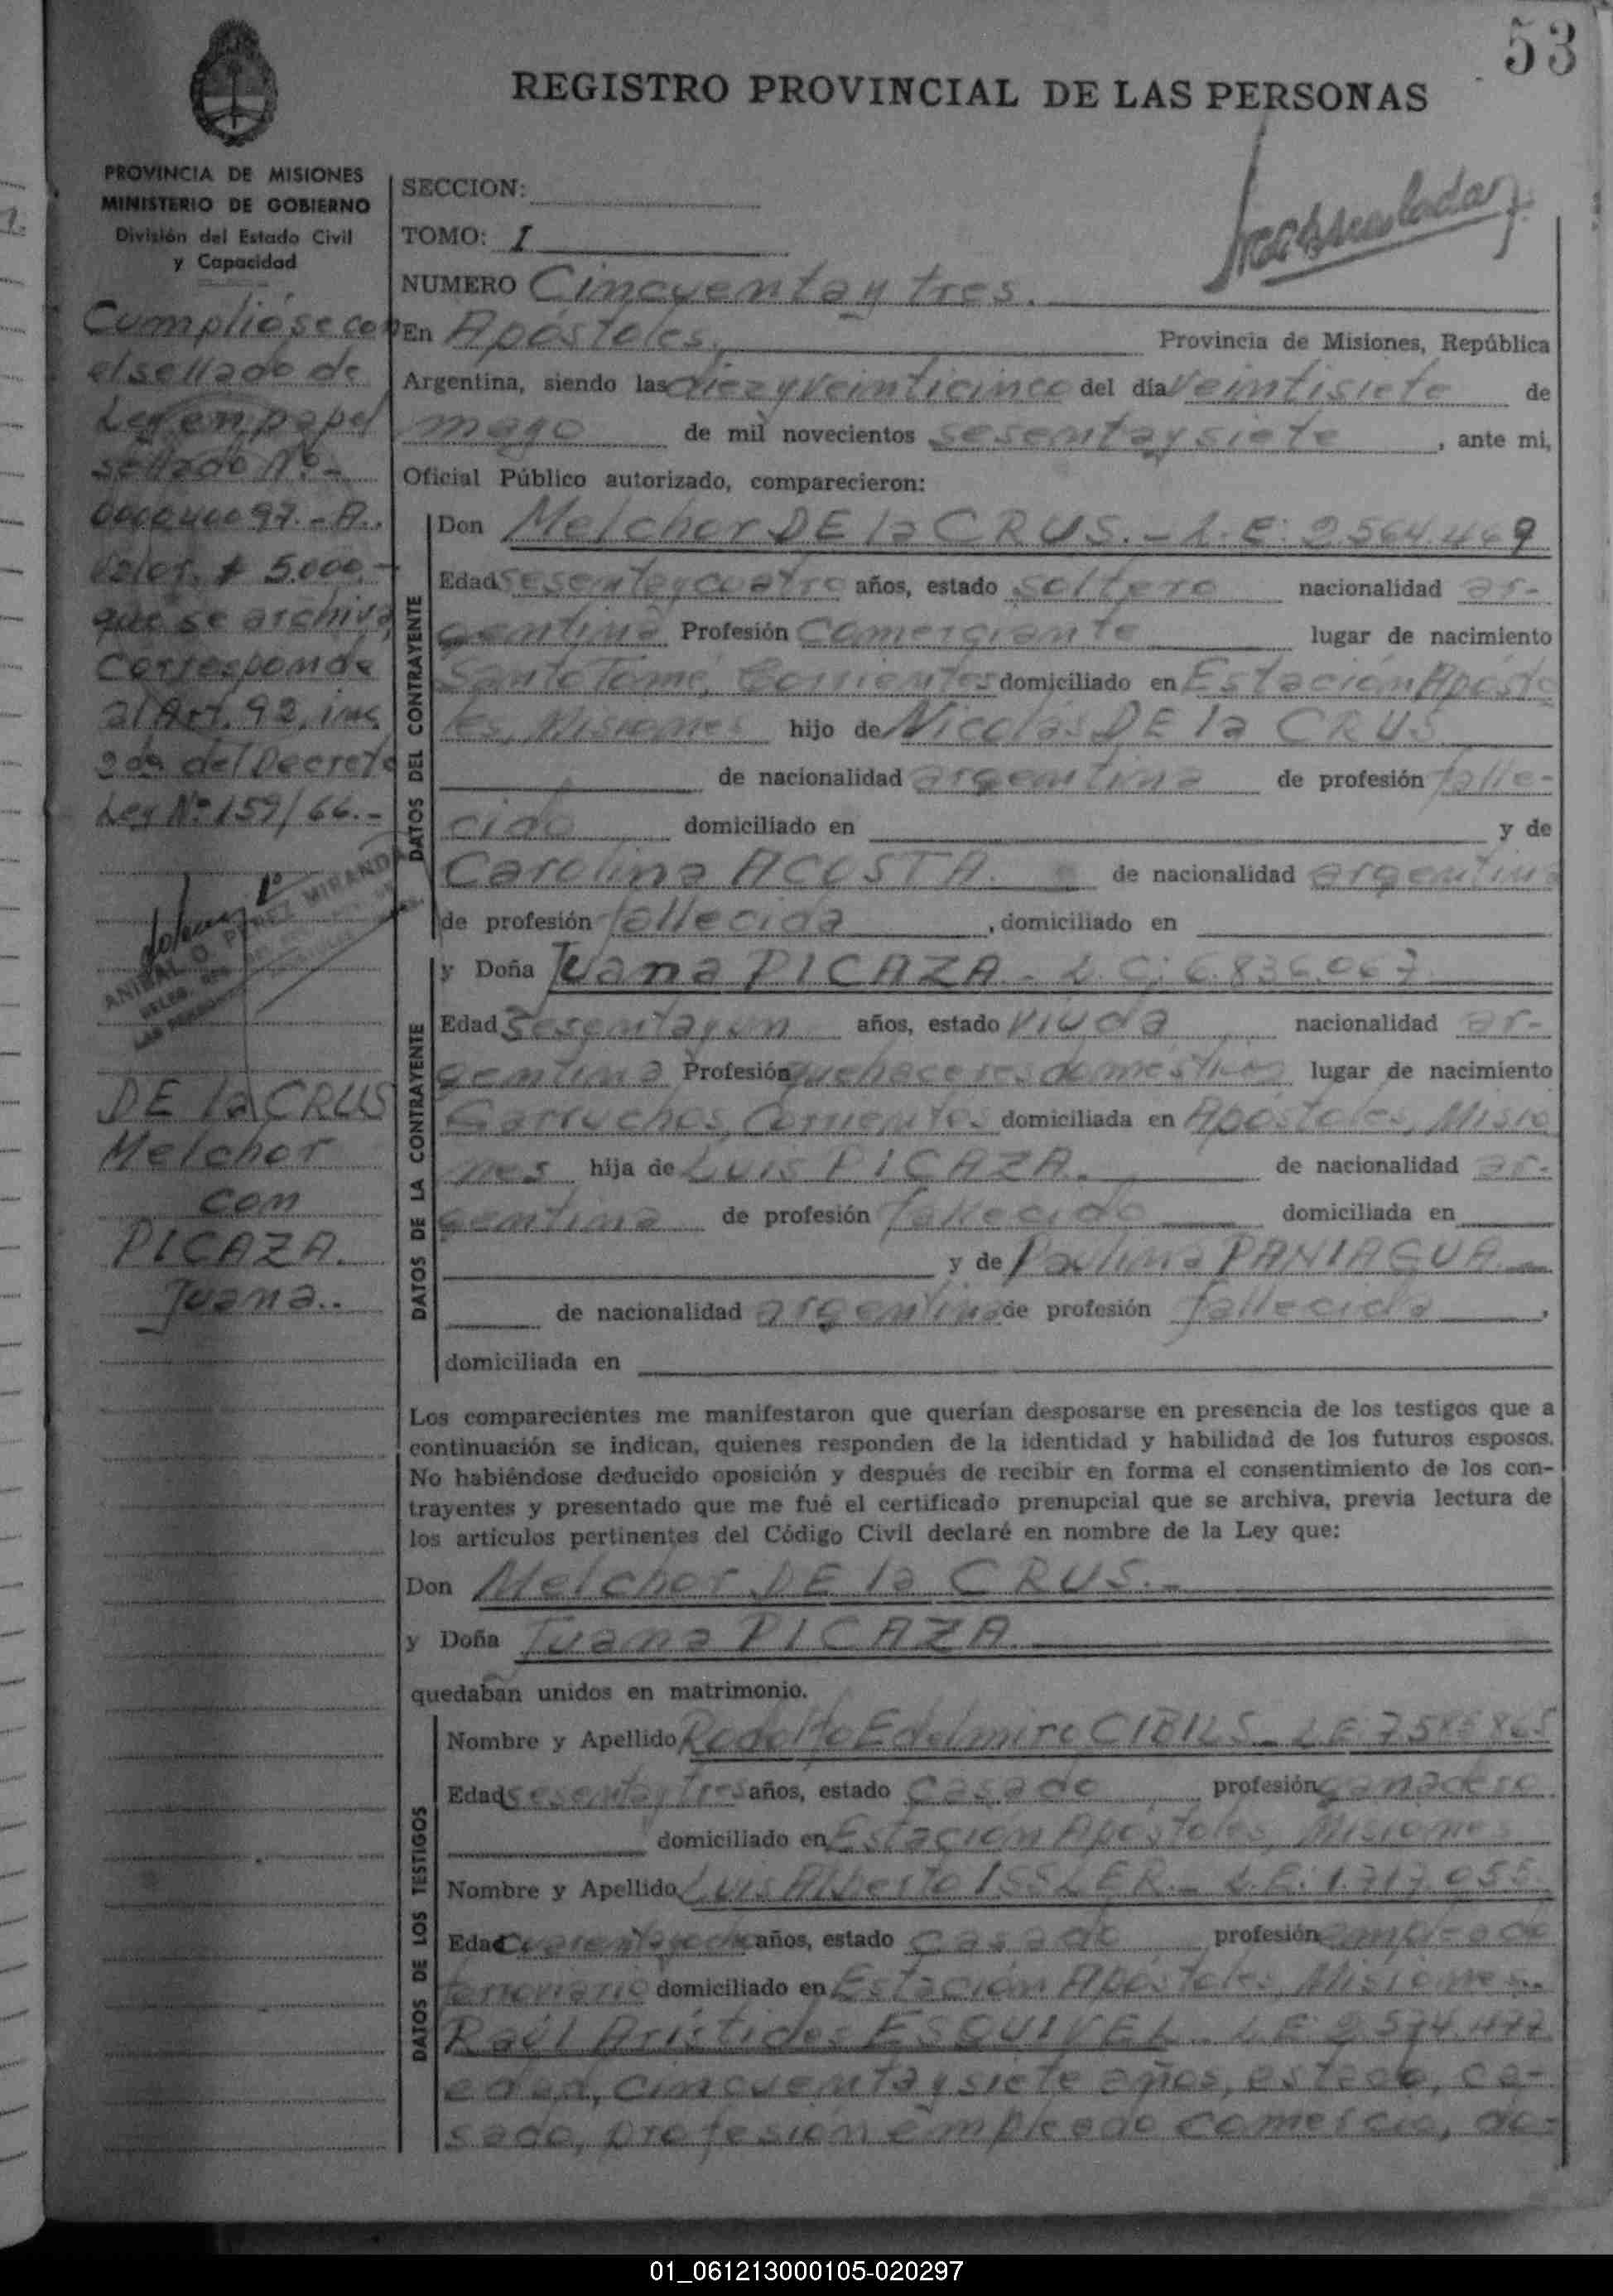 53
REGISTRO PROVINCIAL DE LAS PERSONAS
PROVINCIA DE MISIONES
MINISTERIO DE GOBIERNO
División del Estado Civil
y Capacidad
Cumplióse con
el sellado de
Ley en papel
sellado Nº-
97.-A.
Valor $ 5.000.-
que se archiva
Corresponde
al Art. 92, inc.
2do. del Decreto
Ley Nº 159/66.-
ANIBAL O. PEREZ MIRANDA
DE la CRUS
Melchor
con
PICAZA.
Juana..
SECCION:
TOMO: I
NUMERO Cincuenta y tres.
En Apóstoles, Provincia de Misiones, República
Argentina, siendo las diez y veinticinco del día veintisiete de
mayo de mil novecientos sesenta y siete, ante mi,
Oficial Público autorizado, comparecieron:
DATOS DEL CONTRAYENTE
Don Melchor DE la CRUS.- L.E: 2.564.469
Edad sesenta y cuatro años, estado soltero nacionalidad ar-
gentina Profesión Comerciante lugar de nacimiento
Santo Tomé, Corrientes domiciliado en Estación Apósto
les, Misiones hijo de Nicolás DE la CRUS
de nacionalidad argentina de profesión falle-
cido domiciliado en y de
Carolina ACOSTA. de nacionalidad argentina
de profesión fallecida, domiciliado en
DATOS DE LA CONTRAYENTE
y Doña Juana PICAZA - L.C: 6.836.067
Edad Sesenta y un años, estado viuda nacionalidad ar-
gentina Profesión quehaceres domésticos lugar de nacimiento
Garruchos, Corrientes domiciliada en Apóstoles, Misio
nes hija de Luis PICAZA. de nacionalidad ar-
gentina de profesión fallecido domiciliada en
y de Paulina PANIAGUA.-
de nacionalidad argentina de profesión fallecida,
domiciliada en
Los comparecientes me manifestaron que querían desposarse en presencia de los testigos que a
continuación se indican, quienes responden de la identidad y habilidad de los futuros esposos.
No habiéndose deducido oposición y después de recibir en forma el consentimiento de los con-
trayentes y presentado que me fué el certificado prenupcial que se archiva, previa lectura de
los artículos pertinentes del Código Civil declaré en nombre de la Ley que:
Don Melchor DE la CRUS.-
y Doña Juana PICAZA.
quedaban unidos en matrimonio.
DATOS DE LOS TESTIGOS
Nombre y Apellido Rodolfo Edelmiro CIBILS - L.E: 7.585.865
Edad sesenta y tres años, estado casado profesión ganadero
domiciliado en Estación Apóstoles, Misiones
Nombre y Apellido Luis Alberto ISSLER.- L.E: 1.717.055
Edad cuarenta y ocho años, estado casado profesión empleado
ferroviario domiciliado en Estación Apóstoles, Misiones.-
Raúl Arístides ESQUIVEL - L.E: 2.574.477
edad, cincuenta y siete años, estado, ca-
sado, profesión empleado comercio, do-
01_061213000105-020297